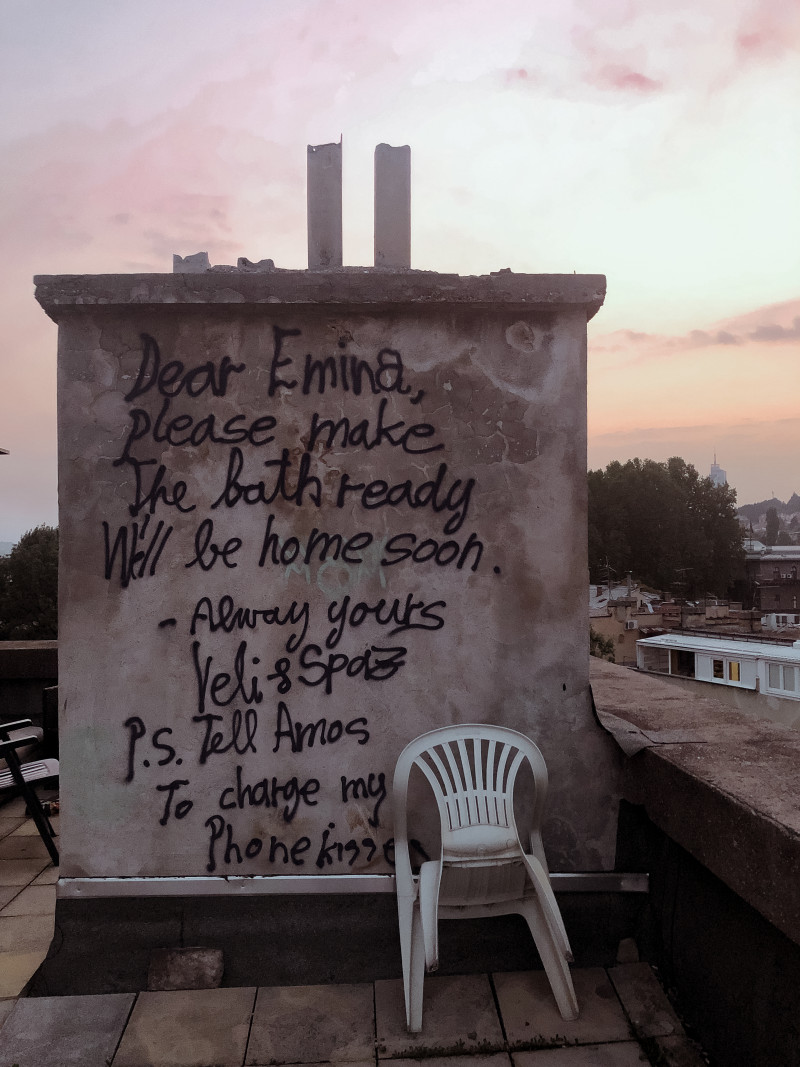 Dear Emina,
please make
The bath ready
We'll be home soon.
MOM
- Alway yours
Veli & Spaz
P.S. Tell Amos
To charge my
Phone kisses